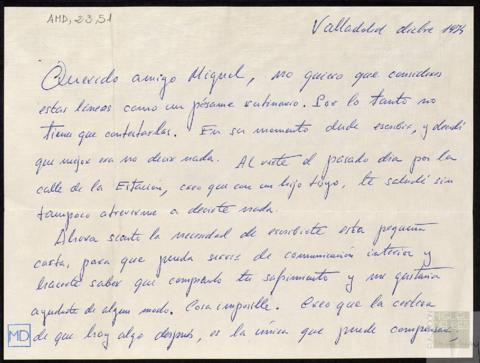 AMD, 23, 51
Valladolid dicbre 1974
Querido amigo Miguel, no quiero que consideres
estas líneas como un pésame rutinario. Por lo tanto no
tienes que contestarlas. En su momento dudé escribir, y decidí
que mejor era no decir nada. Al verte el pasado día por la
calle de la Estación, creo que con un hijo tuyo, te saludé sin
tampoco atreverme a decirte nada.
Ahora siento la necesidad de escribirte esta pequeña
carta, para que pueda servir de comunicación interior y
hacerte saber que comprendo tu sufrimiento y me gustaría
ayudarte de algún modo. Cosa imposible. Creo que la certeza
de que hay algo después, es la única que puede compensar,
MD